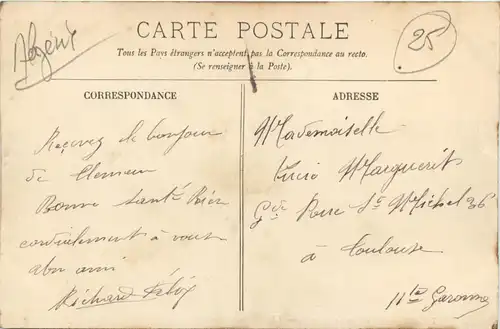 Algérie
25
CARTE POSTALE
Tous les Pays étrangers n'acceptent pas la Correspondance au recto.
(Se renseigner à la Poste).
CORRESPONDANCE
ADRESSE
Reçevez le bonjour
de
Bonne Santé Bien
cordialement à vous
ami
Richard Félix
Mademoiselle
Marguerite
Gde Rue St Michel 36
à Toulouse
Hte Garonne